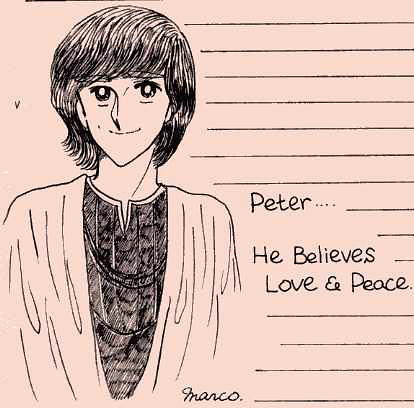 Peter....
He Believes
Love & Peace.
Marco.